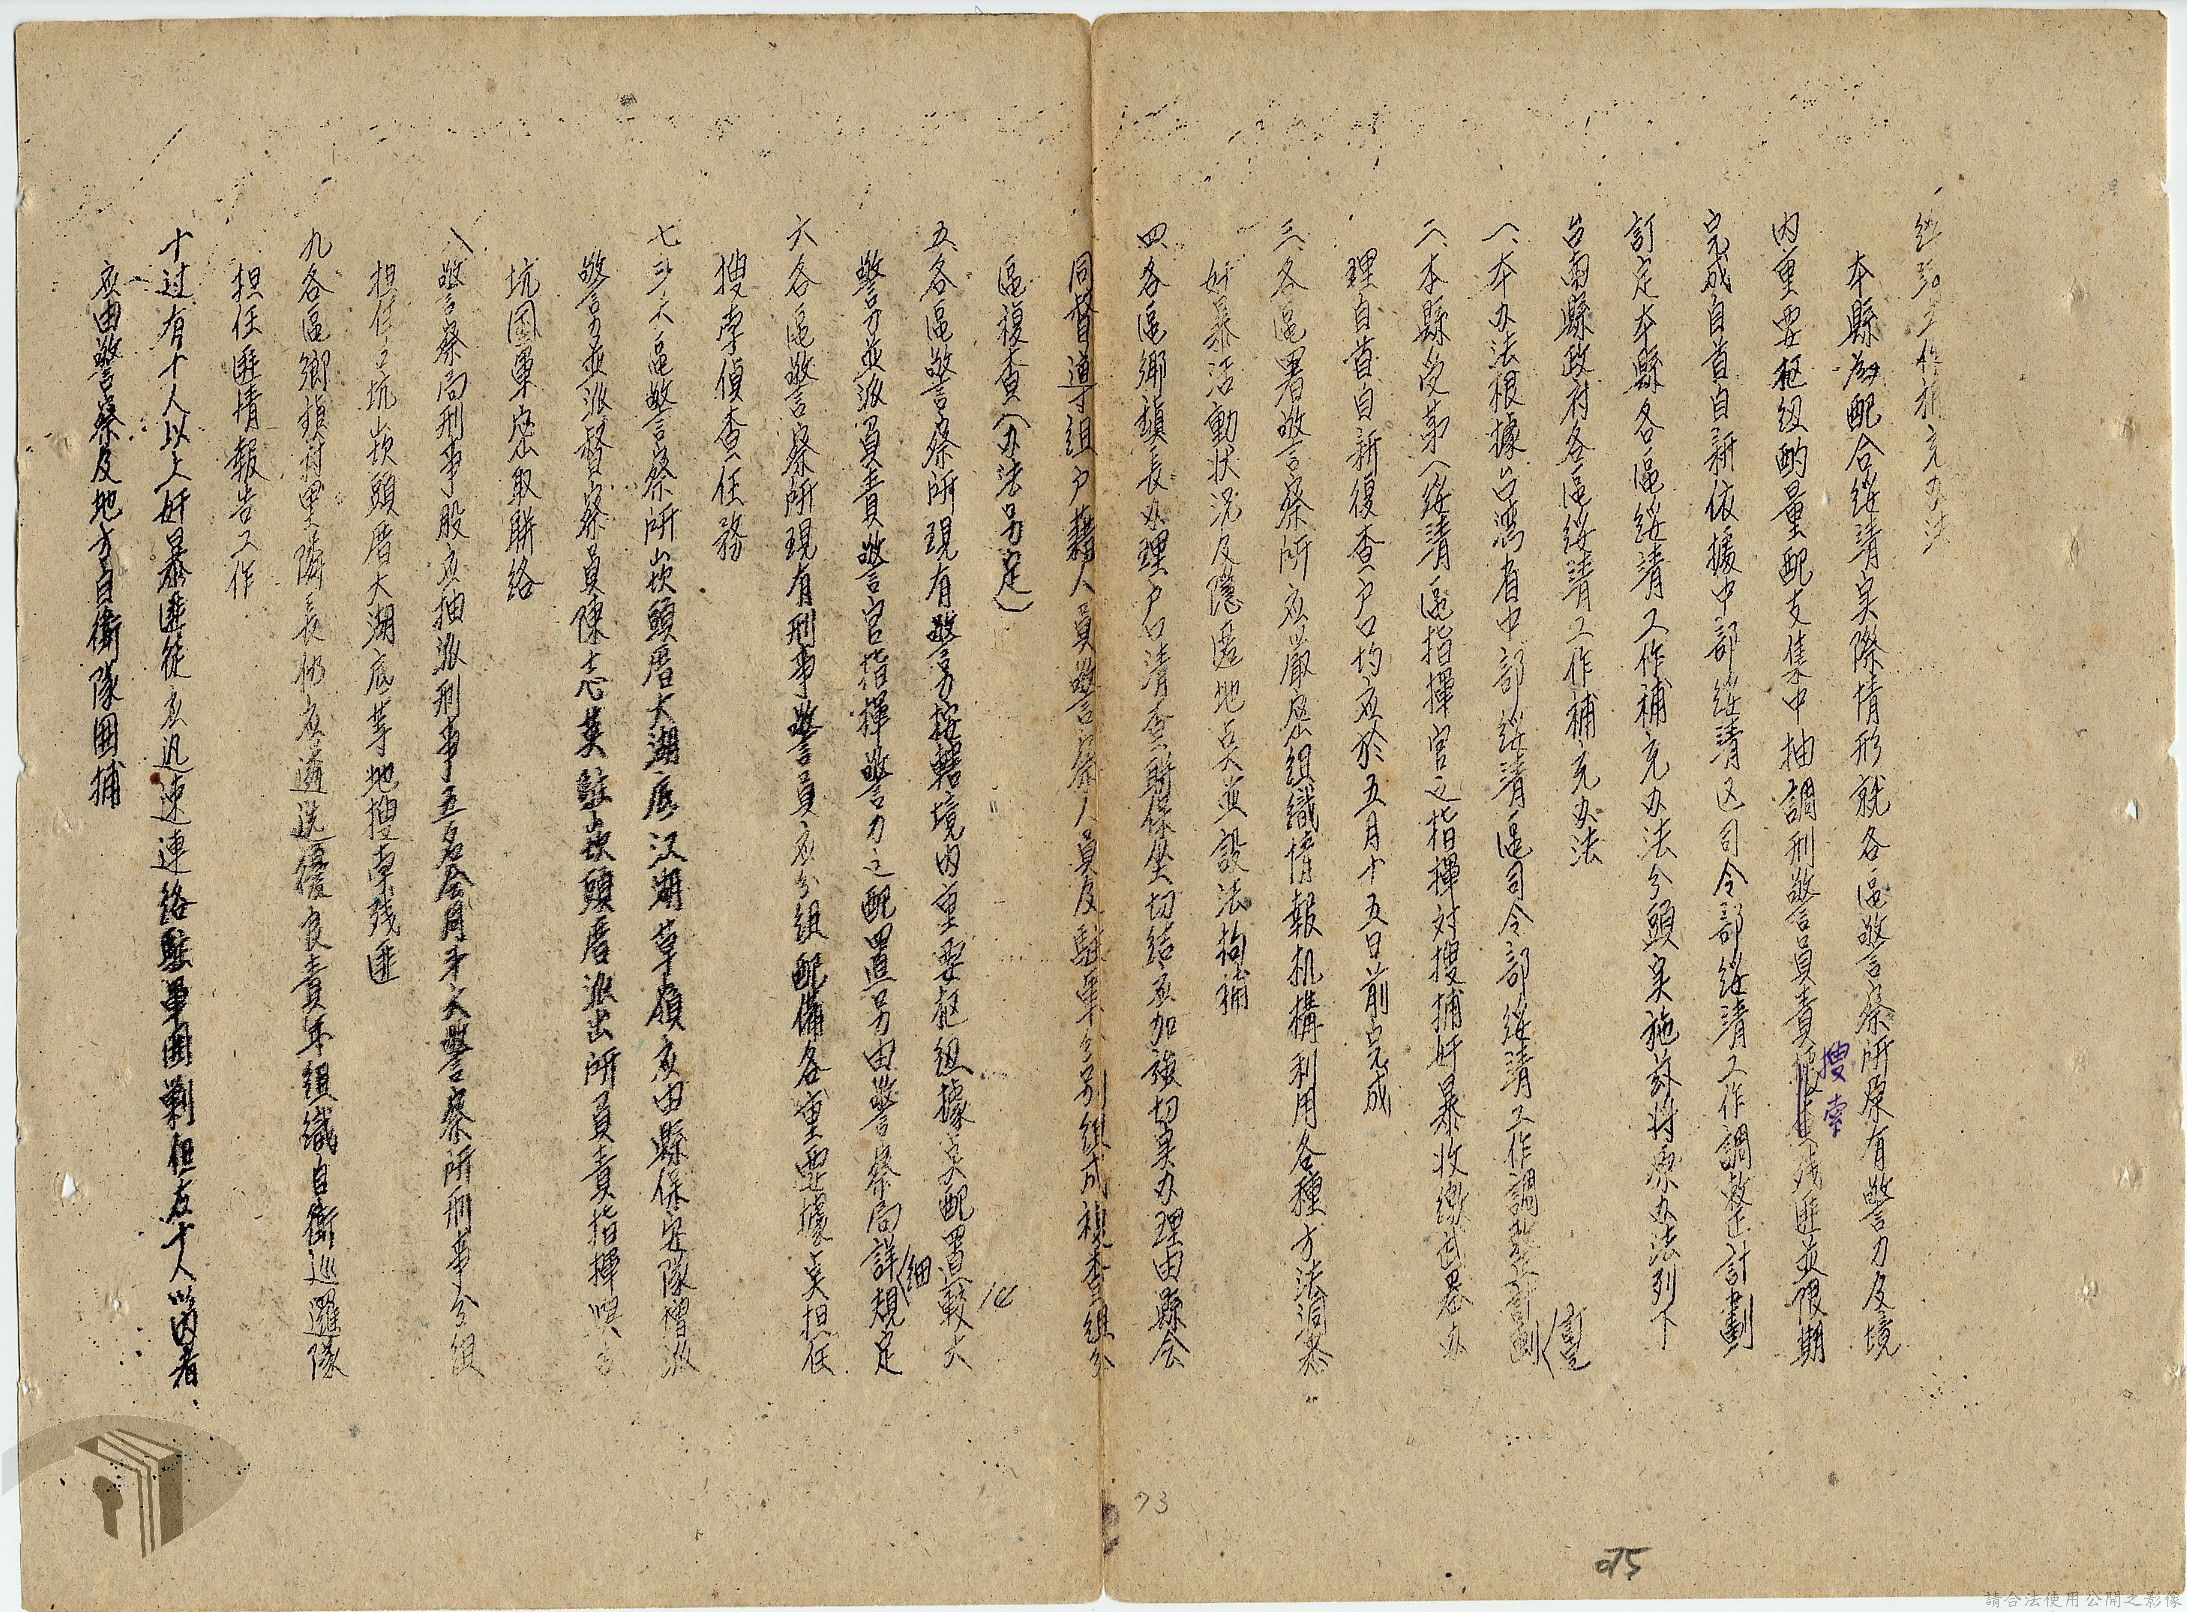 工作補充办法
本縣為配合綏清実際情形就各區警察所原有警力及境
內重要枢紐酌量配支集中抽調刑警員責搜索残匪並限期
完成自首自新依據中部綏清区司令部綏清工作調整計劃
訂定本縣各區綏清工作補充办法分頭実施茲将原办法列下
台南縣政府各區綏清工作補充办法
一、本办法根據台湾省中部綏清區司令部綏清工作調整計劃訂定
二、本縣受第八綏清區指揮官之指揮对搜捕奸暴收繳武器办
理自首自新復查户口均应於五月十五日前完成
三、各區署警察所应嚴密組織情報机構利用各種方法洞悉
奸暴活動状況及隱匿地点並設法拘捕
四、各區鄉鎮長办理户口清查聯保坐切結应加強切実办理由縣会
同督導組户籍人員警察人員及駐軍分别組成複查組分
區複查(办法另定)
五、各區警察所現有警力按轄境内重要枢紐據点配置較大
警力並派員責警官指揮警力之配置另由警察局詳細規定
六各區警察所現有刑事警員应分組配備各重要據点担任
搜索偵查任務
七、區警察所崁頭厝大湖底汉湖草嶺应由縣保安隊增派
警力並派督察員陳志英駐崁頭厝派出所員責指揮
坑国軍密取聯絡
八警察局刑事股应抽派刑事五名会同斗六警察所刑事分組
担任坑崁頭厝大湖底等地搜索残匪
九各區鄉鎮村里隣長仍应遴选優良責年組織自衛巡邏隊
担任匪情報告工作
十过有十人以上奸暴匪徒应迅速連絡駐軍圍剿但在十人以内者
应由警察及地方自衛隊囲捕
73
075
請合法使用公開之影像